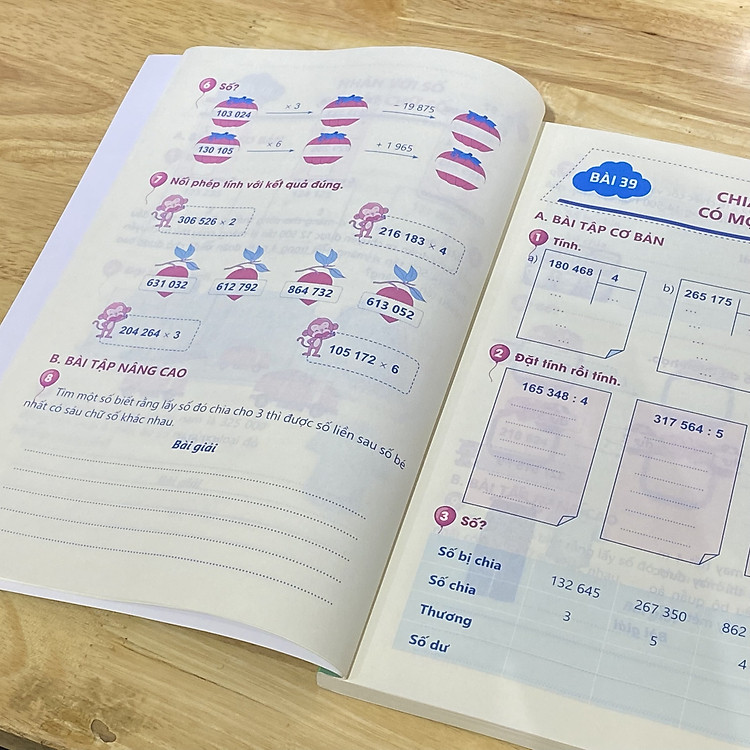 6 Số?
103 024 × 3 – 19 875
130 105 × 6 + 1 965
7 Nối phép tính với kết quả đúng.
306 526 × 2
216 183 × 4
631 032 612 792 864 732 613 052
204 264 × 3
105 172 × 6
B. BÀI TẬP NÂNG CAO
8 Tìm một số biết rằng lấy số đó chia cho 3 thì được số liền sau số bé
nhất có sáu chữ số khác nhau.
Bài giải
BÀI 39
CHIA
CÓ MỘ
A. BÀI TẬP CƠ BẢN
1 Tính.
a) 180 468 4
b) 265 175
2 Đặt tính rồi tính.
165 348 : 4
317 564 : 5
3 Số?
Số bị chia 132 645 267 350 862
Số chia 3 5 4
Thương
Số dư